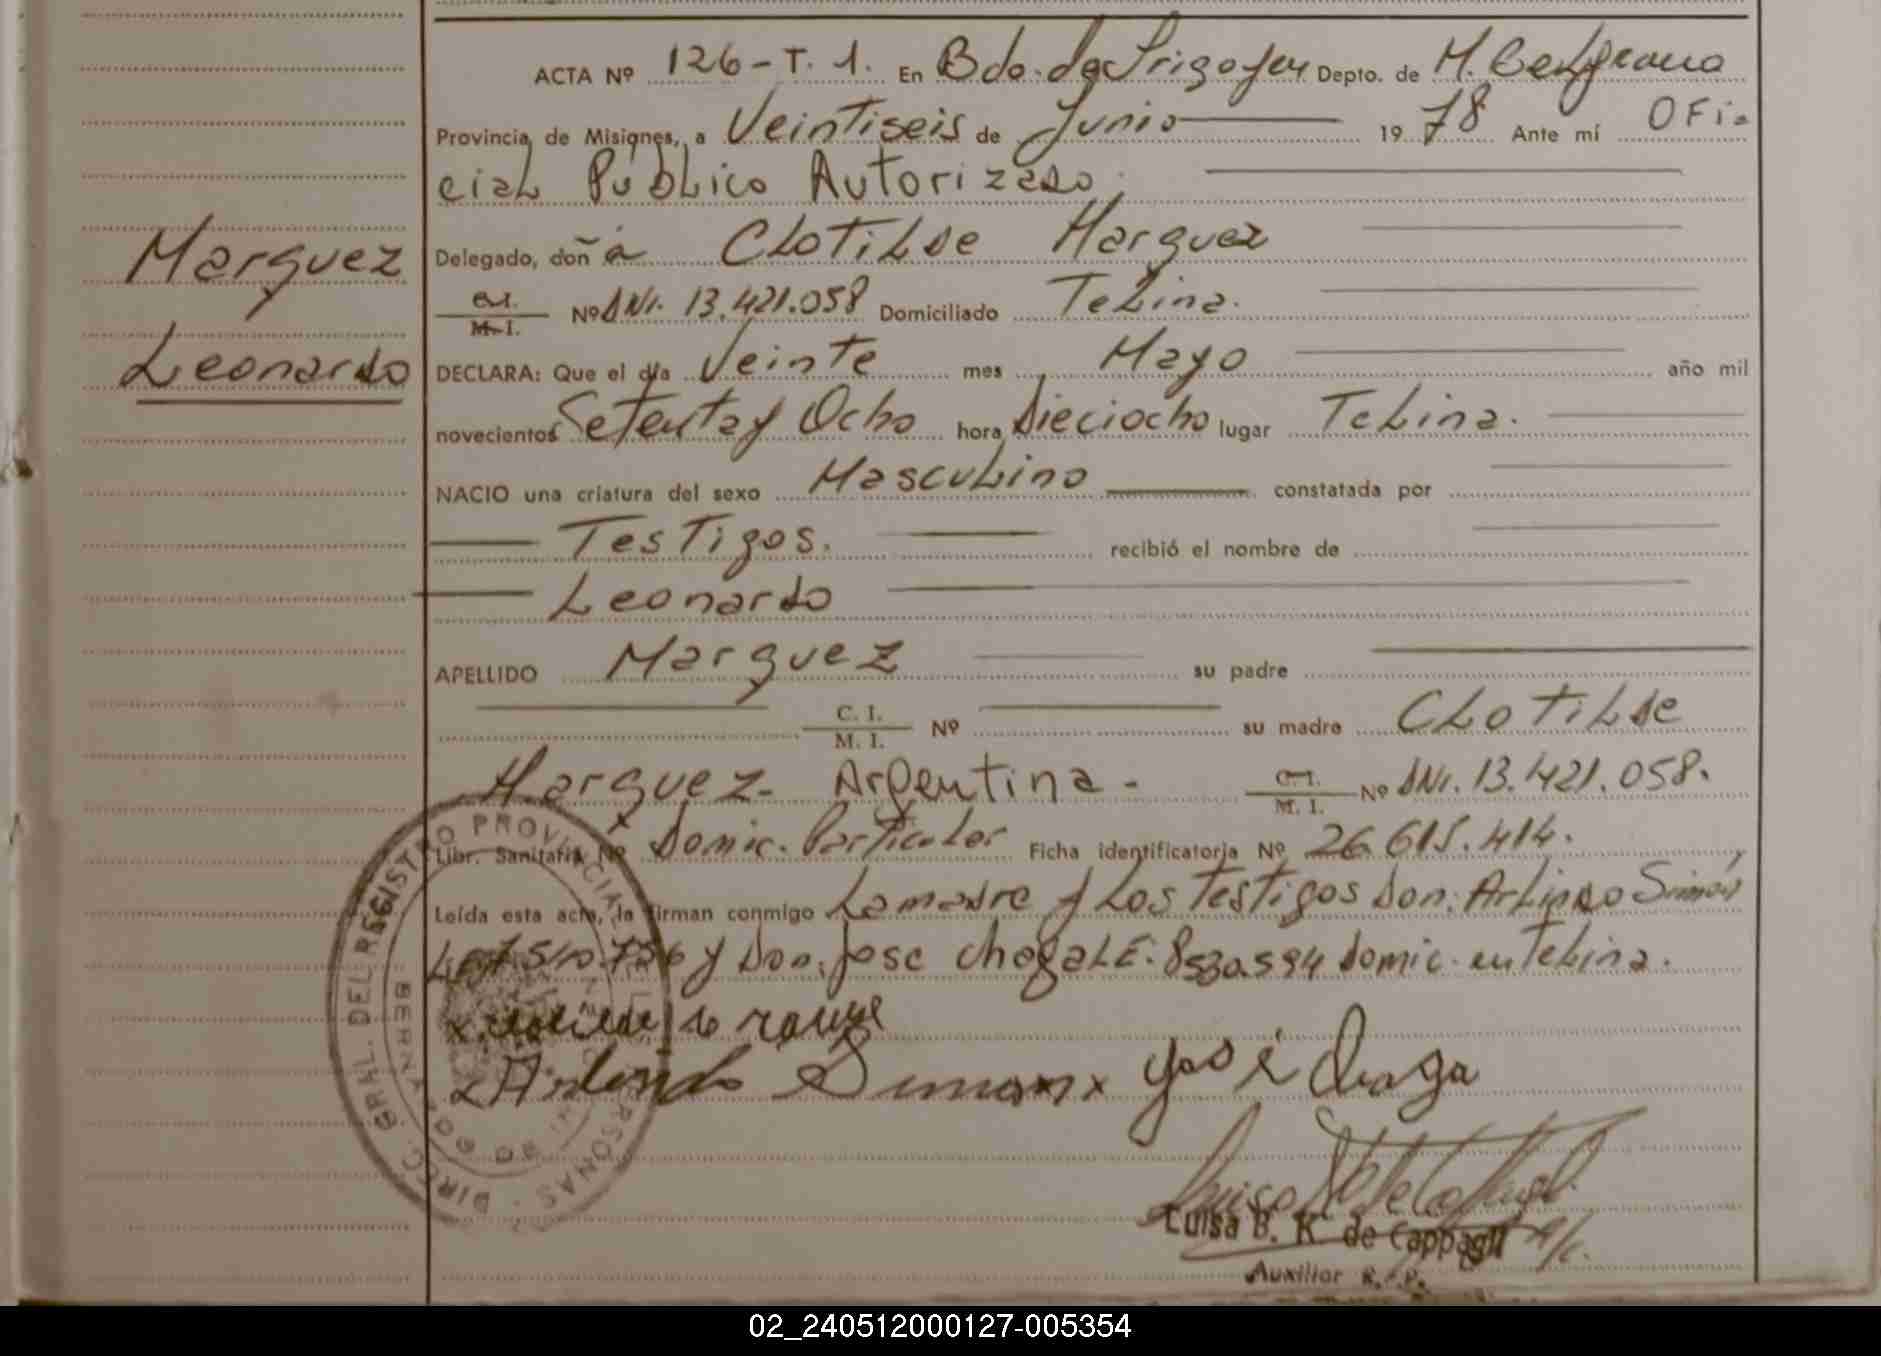 ACTA Nº 126-T. 1. En Bdo. de Irigoyen Depto. de M. Belgrano
Provincia de Misiones, a Veintiseis de Junio 1978 Ante mí Ofi-
cial Público Autorizado.
Marquez
Delegado, doña Clotilde Marquez
C.I. / M.I. Nº DNI. 13.421.058 Domiciliado Teлina.
Leonardo
DECLARA: Que el día Veinte mes Mayo año mil
novecientos Setenta y Ocho hora Dieciocho lugar Teлina.
NACIO una criatura del sexo Masculino constatada por
Testigos. recibió el nombre de
Leonardo
APELLIDO Marquez su padre
C. I. / M. I. Nº su madre Clotilde
Marquez- Argentina - C.I. / M. I. Nº DNI. 13.421.058.
Libr. Sanitaria Nº Domic. Particular Ficha identificatoria Nº 26.615.414.
Leída esta acta, la firman conmigo La madre y Los Testigos Don: Arlindo Simón
LE 7.510.736 y Don. Jose Chaga LE. 8530.594 domic. en
José Chaga
Arlindo Simon
Luisa B. K de Cappagli
Auxiliar R. P.
DIREC. GRAL. DEL REGISTRO PROVINCIAL DE LAS PERSONAS
02_240512000127-005354